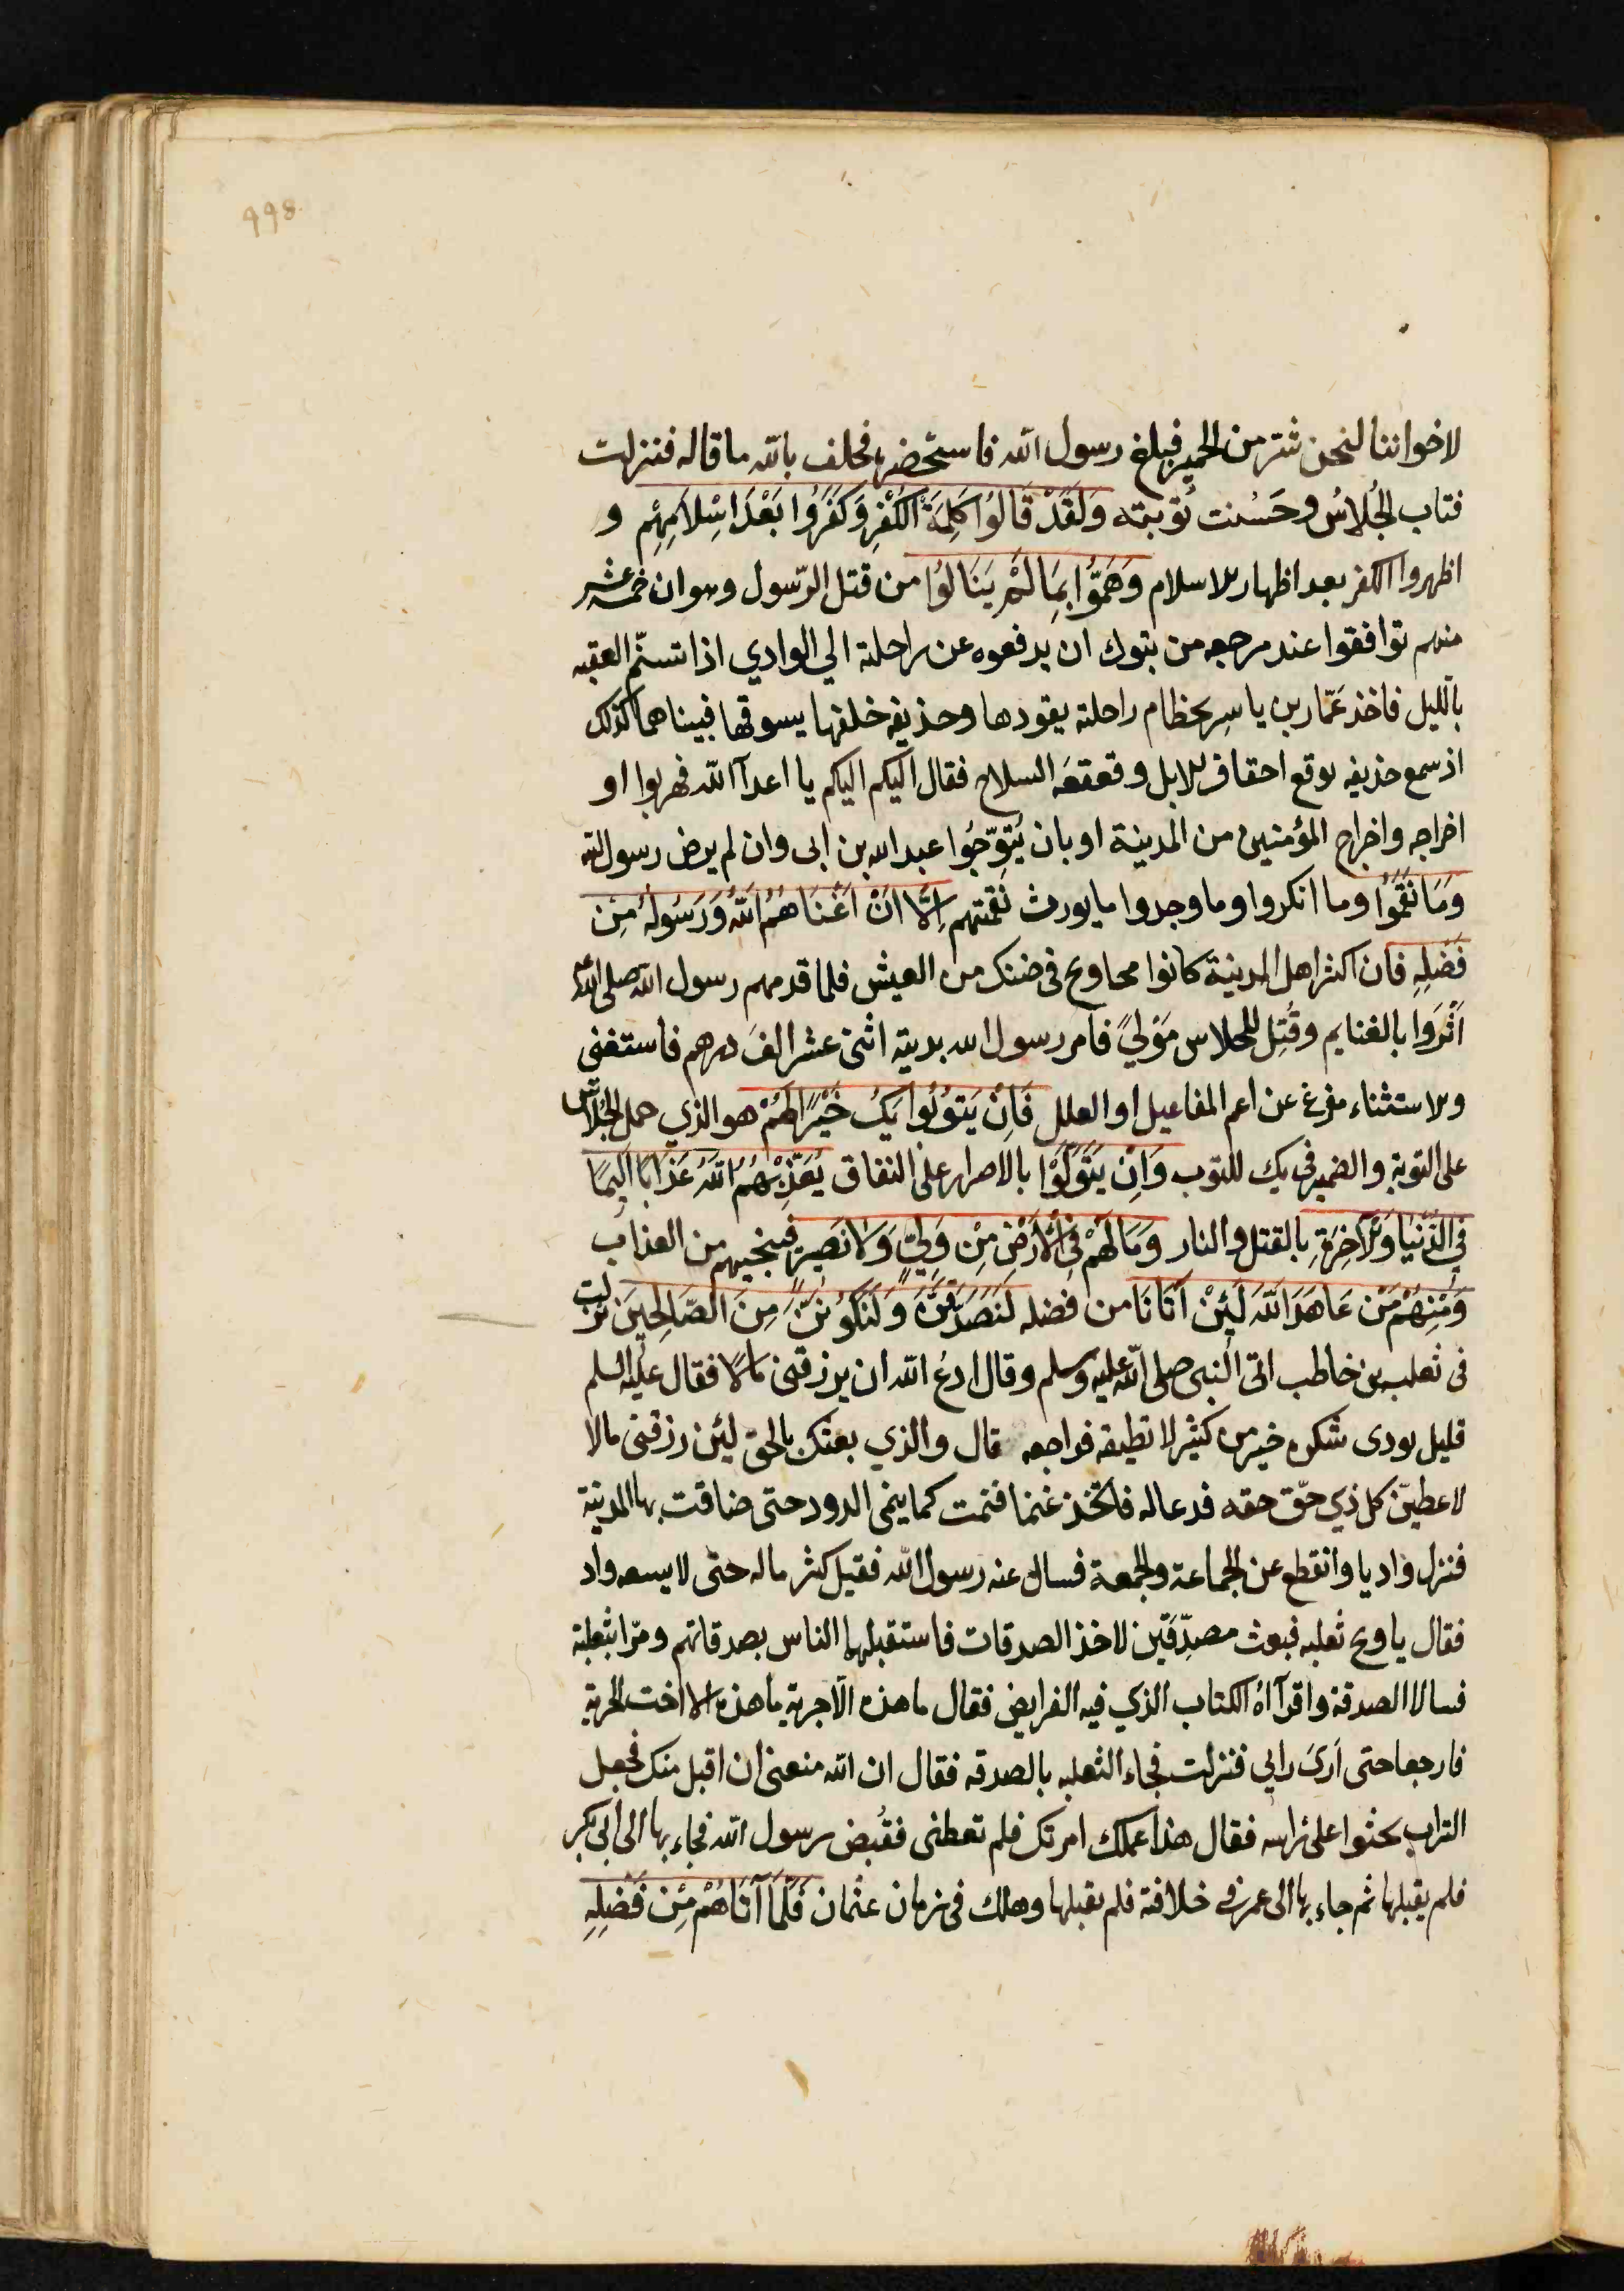 998
لاخواننا لنحن شر من الحمير فبلغ رسول الله فاستحضره فحلف بالله ما قاله فنزلت
فتاب الجُلاسُ وحَسُنت تَوبته وَلَقَدْ قَالُوا كَلِمَةَ الْكُفْرِ وَكَفَرُوا بَعْدَ اِسْلَامِهِم و
اظهروا الكفر بعد اظهار الاسلام وَهَمُّوا بِمَا لَمْ يَنَالُوا من قتل الرّسول وهو ان خمسة عشر
منهم توافقوا عند مرجعه من تبوك ان يدفعوه عن راحلته الي الوادي اذا تسنّم العقبه
بالليل فاخذ عَمّار بن ياسِر بخطام راحلته يقودها وحذيفه خلفها يسوقها فبينا هما كذلك
اذ سمع حذيفه بوقع اخفاف الابل وقعقعَه السلاح فقال اليكم اليكم يا اعدآ الله فهربوا او
اخراجه واخراج المؤمنين من المدينة او بان يُتَوِّجُوا عبد الله بن ابى وان لم يرض رسول الله
وَمَا نَقَمُوا وما انكروا وما وجدوا ما يورث نَقمتهم اِلَّا اَنْ اَغْنَاهُمُ اللهُ وَرَسُولُهُ مِن
فَضْلِهِ فان اكثر اهل المدينة كانوا محاويج فى ضنك من العيش فلما قدمهم رسول الله صلى الله عليه
اَثْرَوا بالغنايم وقُتِل للجلاس مَوْليً فامر رسول الله بديته اثنى عشر الفَ درهم فاستغنى
والاستثناء مفرغ عن اعم المفاعيل او العلل فَاِنْ يَتوبُوا يَكُ خَيْرًا لَهُمْ هو الذي حمل الجُلاس
على التوبة والضمير فى يك للتوب وَاِنْ يَتَوَلَّوْا بالاصرار على النفاق يُعَذِّبْهُمُ اللهُ عَذَابًا اَلِيمًا
فِي الدُّنْيَا وَالْآخِرَةِ بالقتل والنار وَمَا لَهُمْ فِي الْاَرْضِ مِنْ وَلِيٍّ وَلَا نَصِيرٍ فينجيهم من العذاب
وَمِنْهُمْ مَنْ عَاهَدَ اللهَ لَئِنْ آتَانَا من فضله لَنَصَّدَّقَنَّ وَلَنَكُونَنَّ مِنَ الصَّالِحِينَ نزلت
فى ثعلبه بن خاطب اتى النبى صلى الله عليه وسلم وقال ادعُ الله ان يرزقنى مالًا فقال عليه السلم
قليل يودى شكره خير من كثير لا تطيقه فراجعه قال والذي بعثك بالحق لئن رزقنى مالا
لاعطينّ كل ذي حقّ حقه فدعا له فاتخذ غنما فنمت كما ينمى الدود حتى ضاقت بها المدينة
فنزل واديا وانقطع عن الجماعة والجمعة فسال عنه رسول الله فقيل كثر ماله حتى لا يسعه واد
فقال يا ويح ثعلبه فبعث مصدِّقَين لاخذ الصدقات فاستقبلهما الناس بصدقاتهم ومرّا بثعلبة
فسالا الصدقة واقرآاهُ الكتاب الذي فيه الفرايض فقال ما هذه الّا جزية ما هذه الا اخت الجزية
فارجعا حتى اَرىَ رايي فنزلت فجاء الثعلبه بالصدقه فقال ان الله منعنى ان اقبل منك فجعل
التراب يحثوا على راسه فقال هذا عملك امرتك فلم تعطنى فقُبض رسول الله فجاء بها الى ابى بكر
فلم يقبلها ثم جاء بها الى عمر فى خلافته فلم يقبلها وهلك فى زمان عثمان فَلَمَّا آتَاهُمْ مِنْ فَضْلِهِ